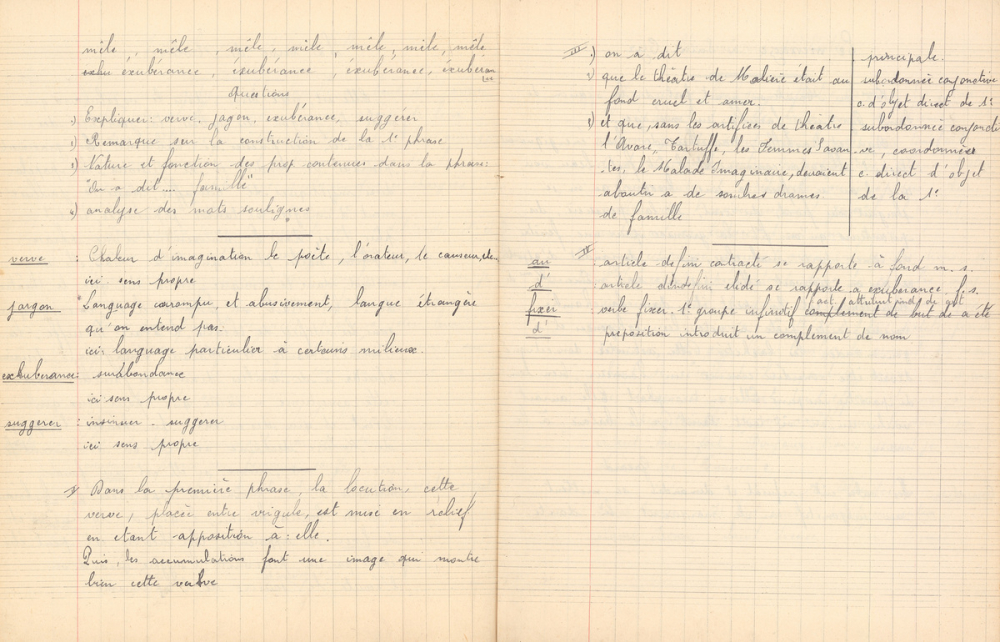 mêle, mêle, mêle, mêle, mêle, mêle, mêle
exhu exubérance, éxubérance, éxubérance, éxubéran
ce
Questions
1) Expliquer: verve, jagon, exubérance, suggérer
2) Remarque sur la construction de la 1e phrase
3) Nature et fonction des prop contenues dans la phrase:
"On a dit... famille"
4) analyse des mots soulignes
verve : Chaleur d'imagination le poète, l'orateur, le causeur, etc.
ici sens propre
jargon : Language corrompu et abusivement, langue étrangère
qu'on entend pas.
ici: language particulier à certains milieux.
exuberance: surabondance
ici sens propre
suggerer : insinuer. suggerer
ici sens propre
Dans la première phrase, la locution, cette
verve, placée entre virgule, est mise en relief
en etant apposition à: elle.
Puis, les accumulations font une image qui montre
bien cette verve
III 1) on a dit
principale.
2) que le théatre de Molière était au
subordonnée conjonctive
fond cruel et amer.
c. d'objet direct de 1°
3) et que, sans les artifices de théatre
subordonnée conjoncti
l'Avare, Tartuffe, les Femmes Savan-
ve, coordonnée
tes, le Malade Imaginaire, devraient
c. direct d'objet
aboutir a de sombres drames
de la 1°
de famille
IV
au : article defini contracté se rapporte à fond m. s.
d' article elidé se rapporte a exuberance f. s.
act. attribut
fixer verbe fixer. 1e groupe infinitif complement de but de a été
d' preposition introduit un complement de nom